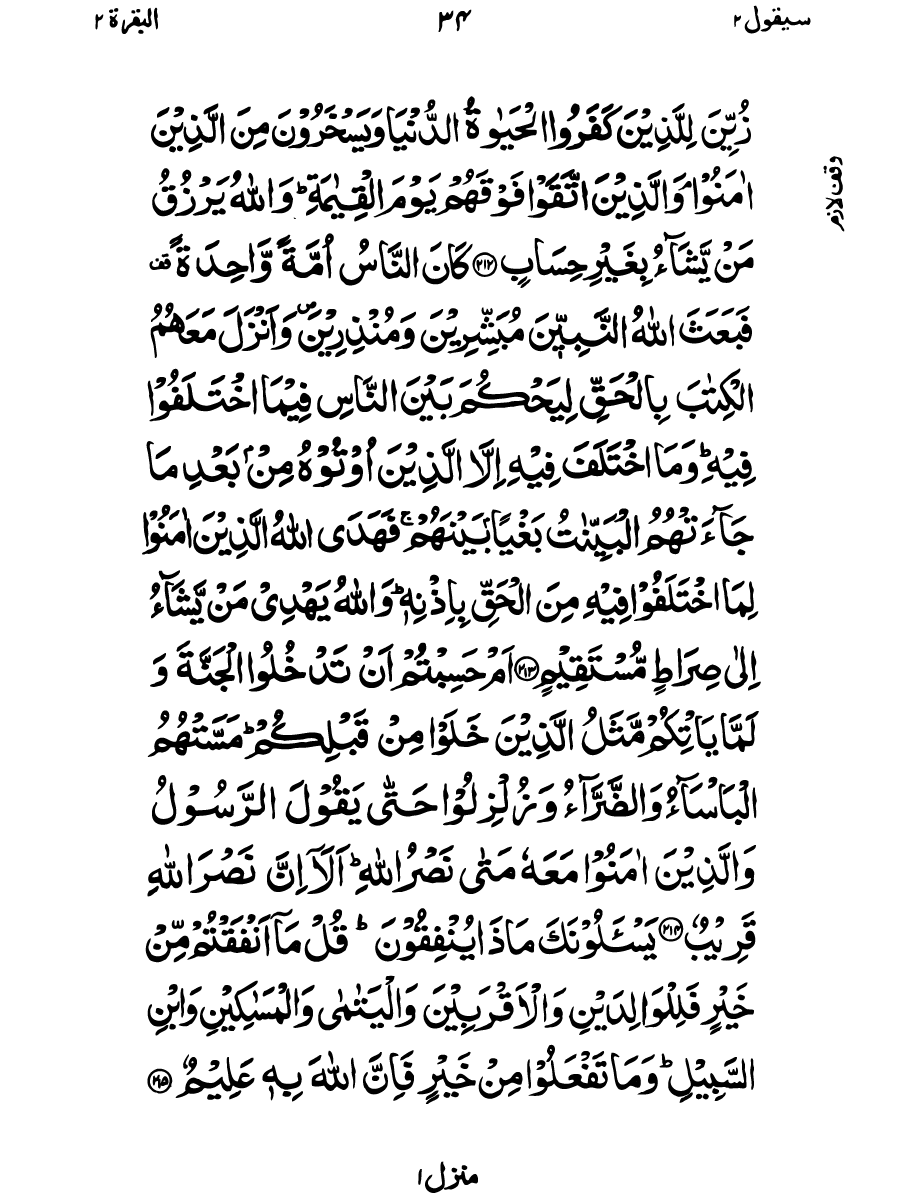 سیقول ۲
۳۴
البقرة ۲
زُيِّنَ لِلَّذِيْنَ كَفَرُوا الْحَيٰوةُ الدُّنْيَا وَيَسْخَرُوْنَ مِنَ الَّذِيْنَ
اٰمَنُوْا ۘ وَالَّذِيْنَ اتَّقَوْا فَوْقَهُمْ يَوْمَ الْقِيٰمَةِ ؕ وَاللّٰهُ يَرْزُقُ
وقف لازم
مَنْ يَّشَآءُ بِغَيْرِ حِسَابٍ ﴿۲۱۲﴾ كَانَ النَّاسُ اُمَّةً وَّاحِدَةً قف
فَبَعَثَ اللّٰهُ النَّبِيّٖنَ مُبَشِّرِيْنَ وَمُنْذِرِيْنَ ۪ وَاَنْزَلَ مَعَهُمُ
الْكِتٰبَ بِالْحَقِّ لِيَحْكُمَ بَيْنَ النَّاسِ فِيْمَا اخْتَلَفُوْا
فِيْهِ ؕ وَمَا اخْتَلَفَ فِيْهِ اِلَّا الَّذِيْنَ اُوْتُوْهُ مِنْۢ بَعْدِ مَا
جَآءَتْهُمُ الْبَيِّنٰتُ بَغْيًۢا بَيْنَهُمْ ۚ فَهَدَى اللّٰهُ الَّذِيْنَ اٰمَنُوْا
لِمَا اخْتَلَفُوْا فِيْهِ مِنَ الْحَقِّ بِاِذْنِهٖ ؕ وَاللّٰهُ يَهْدِيْ مَنْ يَّشَآءُ
اِلٰى صِرَاطٍ مُّسْتَقِيْمٍ ﴿۲۱۳﴾ اَمْ حَسِبْتُمْ اَنْ تَدْخُلُوا الْجَنَّةَ وَ
لَمَّا يَاْتِكُمْ مَّثَلُ الَّذِيْنَ خَلَوْا مِنْ قَبْلِكُمْ ؕ مَسَّتْهُمُ
الْبَاْسَآءُ وَالضَّرَّآءُ وَزُلْزِلُوْا حَتّٰى يَقُوْلَ الرَّسُوْلُ
وَالَّذِيْنَ اٰمَنُوْا مَعَهٗ مَتٰى نَصْرُ اللّٰهِ ؕ اَلَاۤ اِنَّ نَصْرَ اللّٰهِ
قَرِيْبٌ ﴿۲۱۴﴾ يَسْـَٔلُوْنَكَ مَاذَا يُنْفِقُوْنَ ؕ قُلْ مَاۤ اَنْفَقْتُمْ مِّنْ
خَيْرٍ فَلِلْوَالِدَيْنِ وَالْاَقْرَبِيْنَ وَالْيَتٰمٰى وَالْمَسٰكِيْنِ وَابْنِ
السَّبِيْلِ ؕ وَمَا تَفْعَلُوْا مِنْ خَيْرٍ فَاِنَّ اللّٰهَ بِهٖ عَلِيْمٌ ﴿۲۱۵﴾
منزل ۱